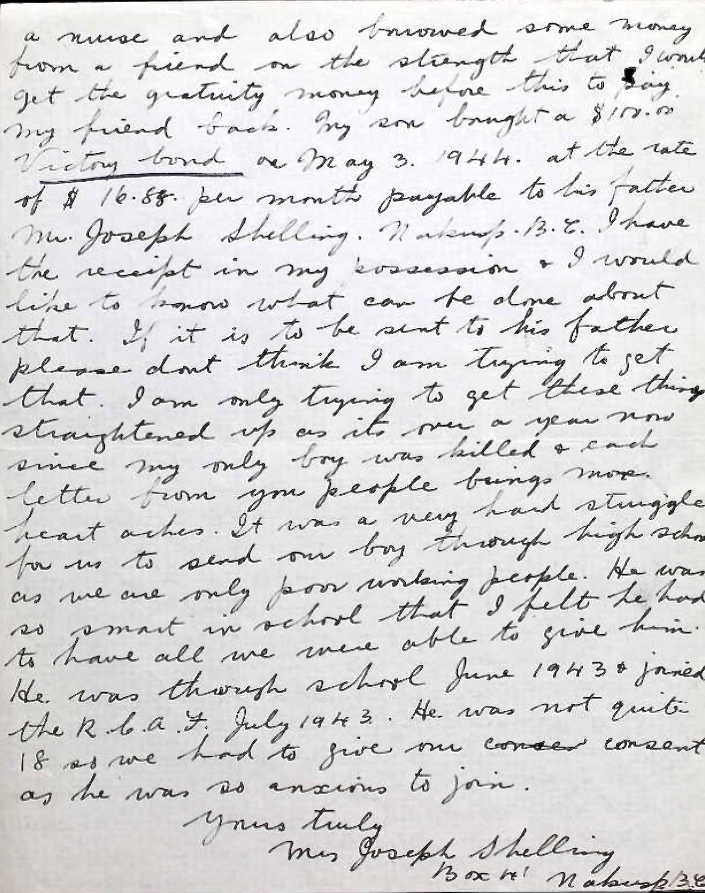 a nurse and also borrowed some money
from a friend on the strength that I would
get the gratuity money before this to pay
my friend back. My son bought a $100.00
Victory bond on May 3. 1944. at the rate
of $ 16.88. per month payable to his father
Mr. Joseph Shelling. Nakusp. B.C. I have
the receipt in my possession & I would
like to know what can be done about
that. If it is to be sent to his father
please dont think I am trying to get
that. I am only trying to get these things
straightened up as its over a year now
since my only boy was killed & each
letter from you people brings more
heart aches. It was a very hard struggle
for us to send our boy through high school
as we are only poor working people. He was
so smart in school that I felt he had
to have all we were able to give him.
He was through school June 1943 & joined
the R.C.A.F. July 1943. He was not quite
18 so we had to give our consent
as he was so anxious to join.
Yours truly
Mrs Joseph Shelling
Box Nakusp B.C